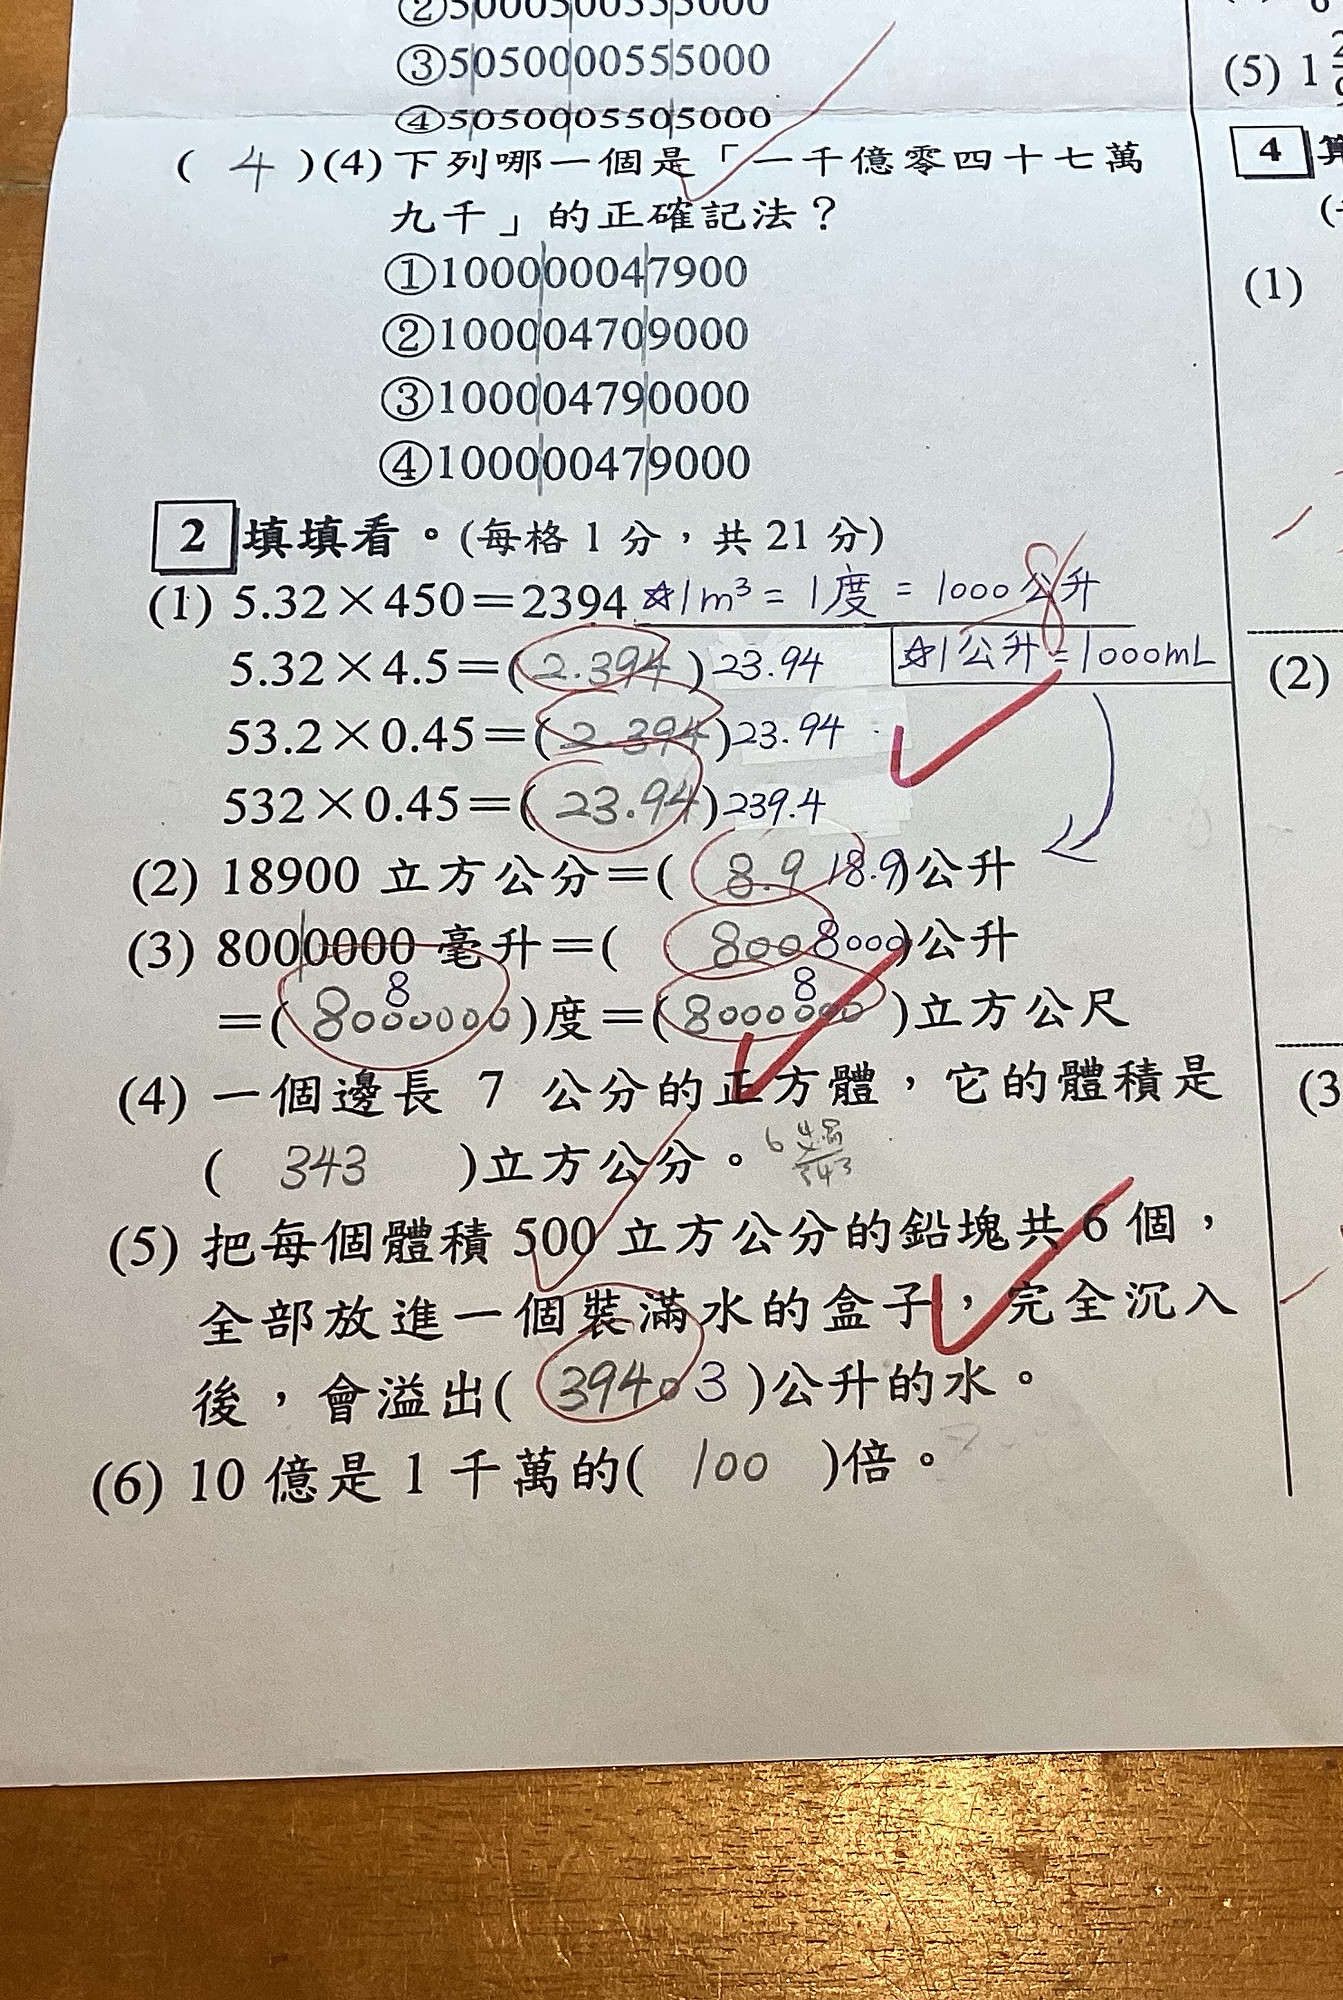 ②5000500555000
③5050000555000
④5050005505000
( 4 )(4)下列哪一個是「一千億零四十七萬
九千」的正確記法？
①100000047900
②100004709000
③100004790000
④100000479000
2 填填看。(每格 1 分，共 21 分)
(1) 5.32×450＝2394 ☆1m³ = 1度 = 1000公升
8
5.32×4.5＝( 2.394 )23.94 ☆1公升=1000mL
53.2×0.45＝( 2.394 )23.94
532×0.45＝( 23.94 )239.4
(2) 18900 立方公分＝( 8.9 18.9 )公升
(3) 8000000 毫升＝( 800 8000 )公升
8 8
＝( 8000000 )度＝( 8000000 )立方公尺
(4) 一個邊長 7 公分的正方體，它的體積是
( 343 )立方公分。
(5) 把每個體積 500 立方公分的鉛塊共 6 個，
全部放進一個裝滿水的盒子，完全沉入
後，會溢出( 3940 3 )公升的水。
(6) 10 億是 1 千萬的( 100 )倍。
(5) 1
4
(1)
(2)
(3